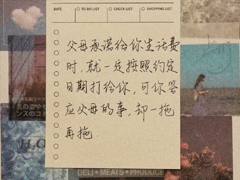 DATE
TO DO LIST
CHECK LIST
SHOPPING LIST
父母承诺给你生活费
时,就一定按照约定
日期打给你,可你答
应父母的事,却一拖
再拖
DELI★MEATS★PRODUCE